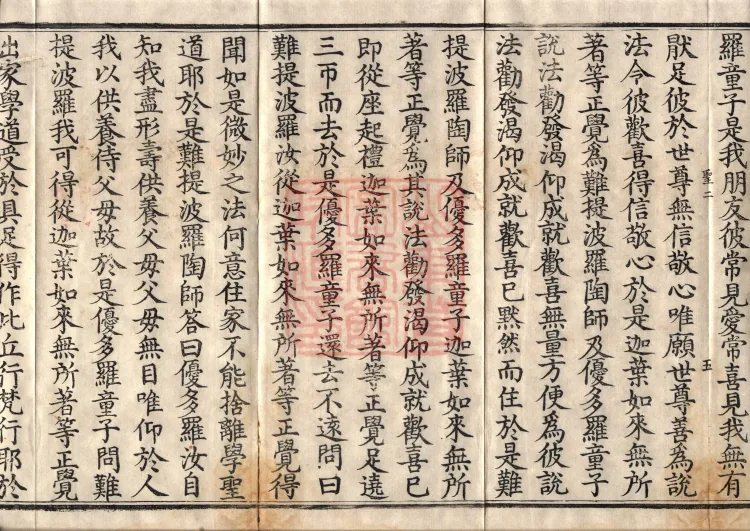 羅童子是我朋友彼常見愛常喜見我無有
聖二 五
猒足彼於世尊無信敬心唯願世尊善爲說
法令彼歡喜得信敬心於是迦葉如來無所
著等正覺爲難提波羅陶師及優多羅童子
說法勸發渴仰成就歡喜無量方便爲彼說
法勸發渴仰成就歡喜已黙然而住於是難
提波羅陶師及優多羅童子迦葉如來無所
著等正覺爲其說法勸發渴仰成就歡喜已
即從座起禮迦葉如來無所著等正覺足遶
三帀而去於是優多羅童子還去不遠問曰
難提波羅汝從迦葉如來無所著等正覺得
聞如是微妙之法何意住家不能捨離學聖
道耶於是難提波羅陶師答曰優多羅汝自
知我盡形壽供養父母父母無目唯仰於人
我以供養侍父母故於是優多羅童子問難
提波羅我可得從迦葉如來無所著等正覺
出家學道受於具足得作比丘行梵行耶於